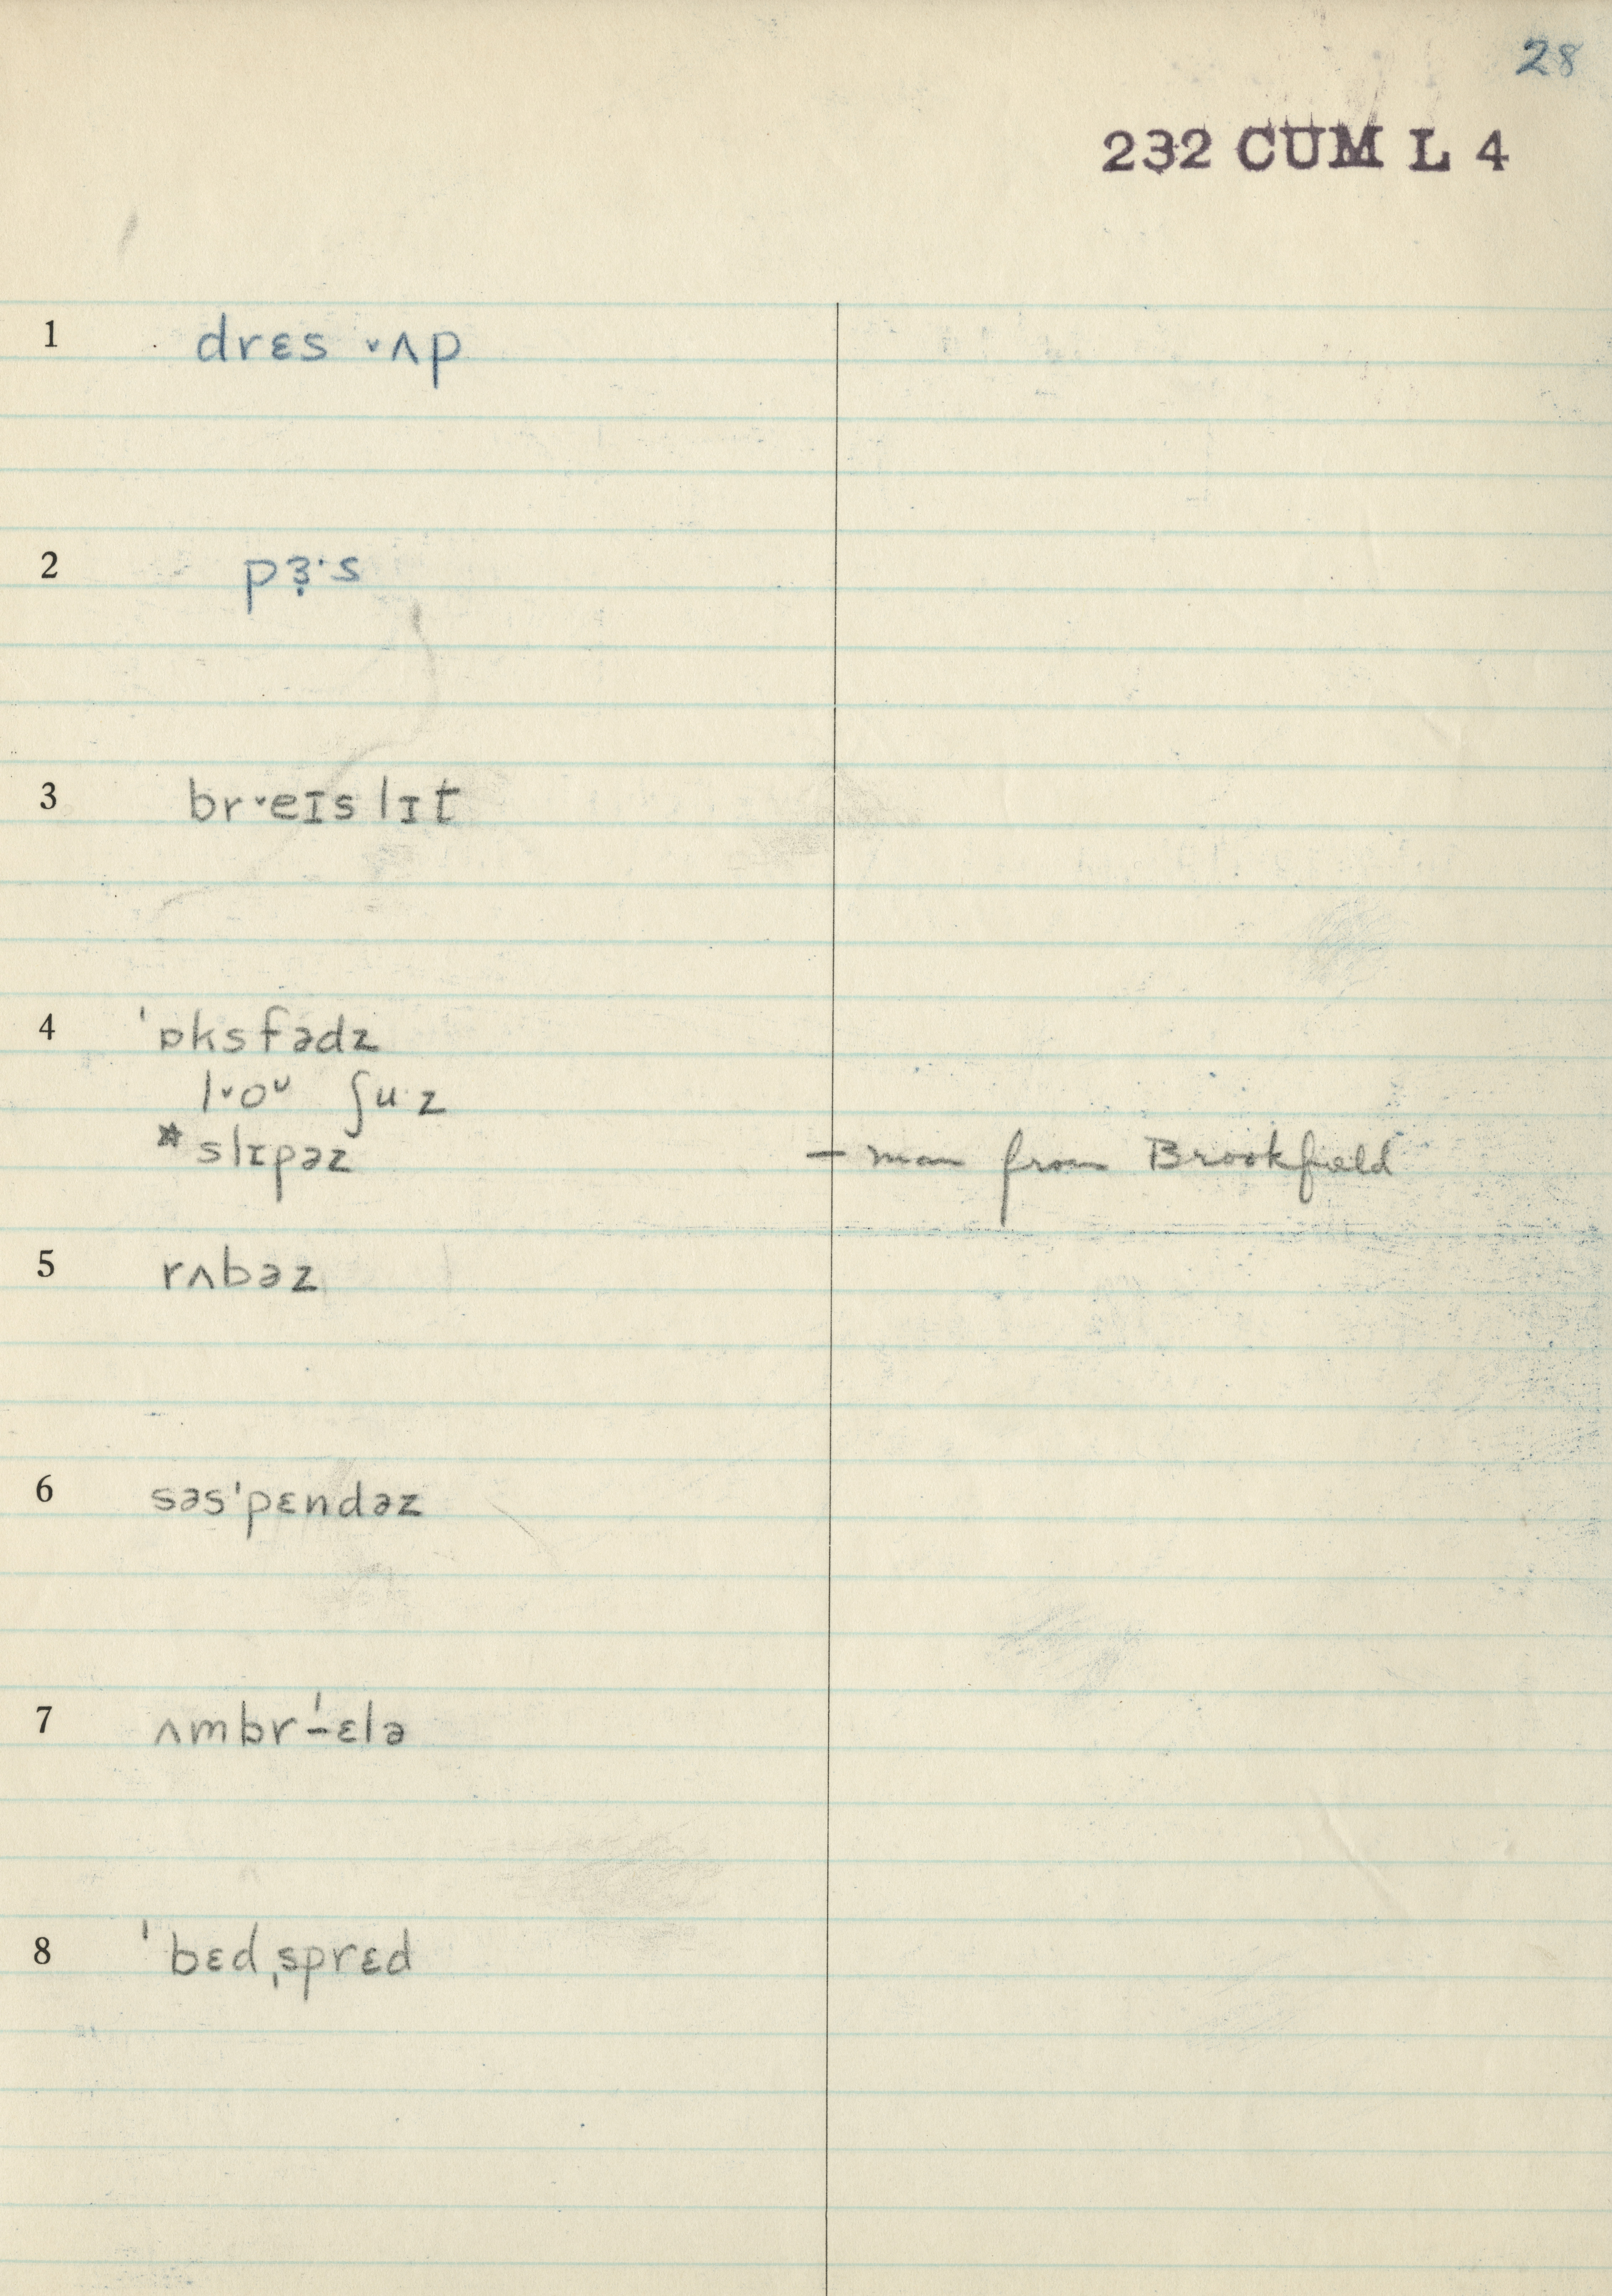 28
232 CUM L 4
1 drɛs ˇʌp
2 pɜ̣·s
3 brˇeɪslɪt
4 'ɒksfədz
lˇoᴜ ʃu·z
*slɪpəz — man from Brookfield
5 rʌbəz
6 səs'pɛndəz
7 ʌmbr'-ɛlə
8 'bɛdˌsprɛd